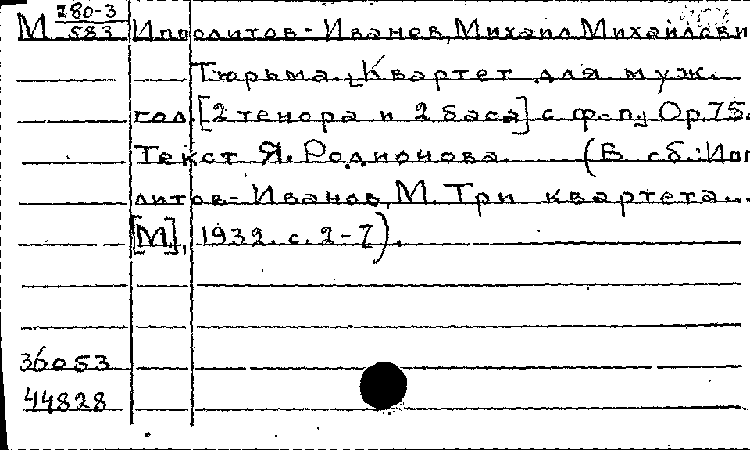 М 280-3/583 Ипполитов-Иванов, Михаил Михайлови
Тюрьма. Квартет для муж.
гол. [2 тенора и 2 баса] с ф-п., Op. 75.
Текст Я. Родионова. (В сб.: Ипп
литов-Иванов, М. Три квартета...
[М], 1932. с. 2-7).
36053
44828